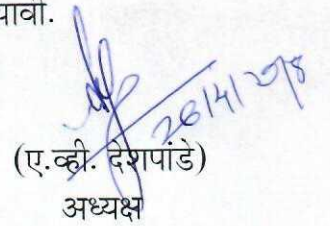 यावी.
26/4/2018
(ए.व्ही. देशपांडे)
अध्यक्ष